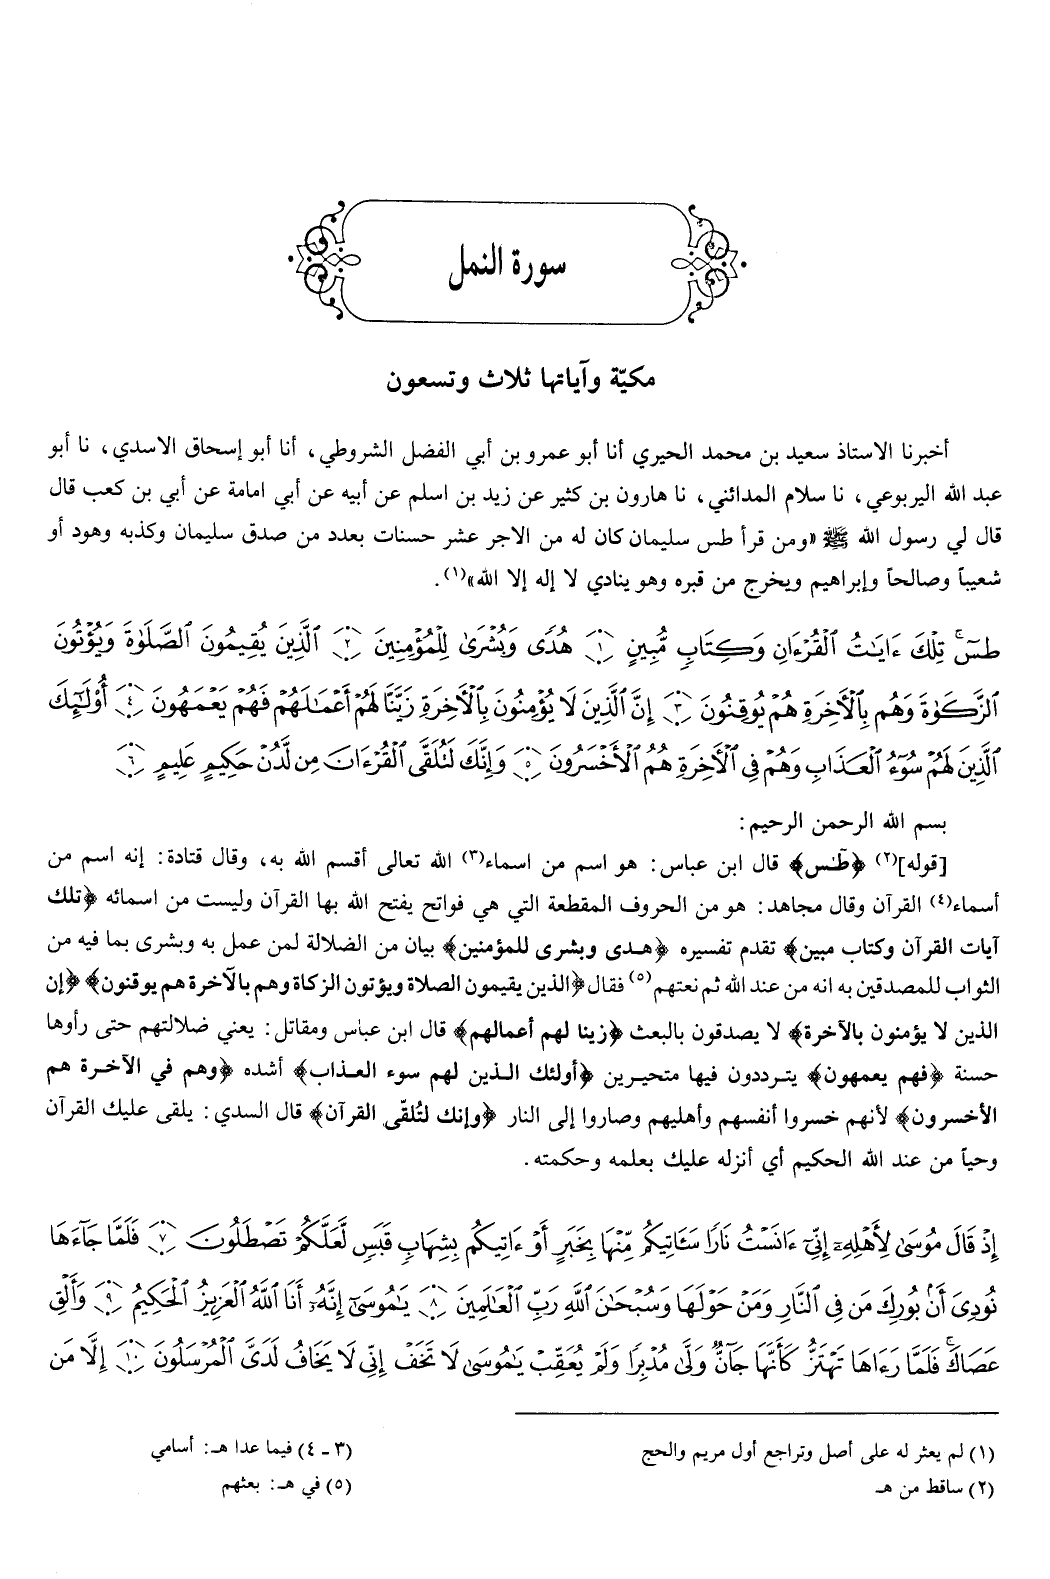 سورة النمل
مكيّة وآياتها ثلاث وتسعون
أخبرنا الاستاذ سعيد بن محمد الحيري أنا أبو عمرو بن أبي الفضل الشروطي، أنا أبو إسحاق الاسدي، نا أبو
عبد الله اليربوعي، نا سلام المدائني، نا هارون بن كثير عن زيد بن اسلم عن أبيه عن أبي امامة عن أبي بن كعب قال
قال لي رسول الله ﷺ «ومن قرأ طس سليمان كان له من الاجر عشر حسنات بعدد من صدق سليمان وكذبه وهود أو
شعيباً وصالحاً وإبراهيم ويخرج من قبره وهو ينادي لا إله إلا الله»(١).
طسٓۚ تِلْكَ ءَايَٰتُ ٱلْقُرْءَانِ وَكِتَابٍ مُّبِينٍ ﴿١﴾ هُدًى وَبُشْرَىٰ لِلْمُؤْمِنِينَ ﴿٢﴾ ٱلَّذِينَ يُقِيمُونَ ٱلصَّلَوٰةَ وَيُؤْتُونَ
ٱلزَّكَوٰةَ وَهُم بِٱلْأَخِرَةِ هُمْ يُوقِنُونَ ﴿٣﴾ إِنَّ ٱلَّذِينَ لَا يُؤْمِنُونَ بِٱلْأَخِرَةِ زَيَّنَّا لَهُمْ أَعْمَٰلَهُمْ فَهُمْ يَعْمَهُونَ ﴿٤﴾ أُوْلَٰٓئِكَ
ٱلَّذِينَ لَهُمْ سُوٓءُ ٱلْعَذَابِ وَهُمْ فِى ٱلْأَخِرَةِ هُمُ ٱلْأَخْسَرُونَ ﴿٥﴾ وَإِنَّكَ لَتُلَقَّى ٱلْقُرْءَانَ مِن لَّدُنْ حَكِيمٍ عَلِيمٍ ﴿٦﴾
بسم الله الرحمن الرحيم:
[قوله](٢) ﴿طٓس﴾ قال ابن عباس: هو اسم من اسماء(٣) الله تعالى أقسم الله به، وقال قتادة: إنه اسم من
أسماء(٤) القرآن وقال مجاهد: هو من الحروف المقطعة التي هي فواتح يفتح الله بها القرآن وليست من اسمائه ﴿تلك
آيات القرآن وكتاب مبين﴾ تقدم تفسيره ﴿هدى وبشرى للمؤمنين﴾ بيان من الضلالة لمن عمل به وبشرى بما فيه من
الثواب للمصدقين به انه من عند الله ثم نعتهم(٥) فقال ﴿الذين يقيمون الصلاة ويؤتون الزكاة وهم بالآخرة هم يوقنون﴾ ﴿إن
الذين لا يؤمنون بالآخرة﴾ لا يصدقون بالبعث ﴿زينا لهم أعمالهم﴾ قال ابن عباس ومقاتل: يعني ضلالتهم حتى رأوها
حسنة ﴿فهم يعمهون﴾ يترددون فيها متحيرين ﴿أولئك الذين لهم سوء العذاب﴾ أشده ﴿وهم في الآخرة هم
الأخسرون﴾ لأنهم خسروا أنفسهم وأهليهم وصاروا إلى النار ﴿وإنك لتُلقّى القرآن﴾ قال السدي: يلقى عليك القرآن
وحياً من عند الله الحكيم أي أنزله عليك بعلمه وحكمته.
إِذْ قَالَ مُوسَىٰ لِأَهْلِهِۦٓ إِنِّىٓ ءَانَسْتُ نَارًا سَـَٔاتِيكُم مِّنْهَا بِخَبَرٍ أَوْ ءَاتِيكُم بِشِهَابٍ قَبَسٍ لَّعَلَّكُمْ تَصْطَلُونَ ﴿٧﴾ فَلَمَّا جَآءَهَا
نُودِىَ أَنۢ بُورِكَ مَن فِى ٱلنَّارِ وَمَنْ حَوْلَهَا وَسُبْحَٰنَ ٱللَّهِ رَبِّ ٱلْعَٰلَمِينَ ﴿٨﴾ يَٰمُوسَىٰٓ إِنَّهُۥٓ أَنَا ٱللَّهُ ٱلْعَزِيزُ ٱلْحَكِيمُ ﴿٩﴾ وَأَلْقِ
عَصَاكَۚ فَلَمَّا رَءَاهَا تَهْتَزُّ كَأَنَّهَا جَآنٌّ وَلَّىٰ مُدْبِرًا وَلَمْ يُعَقِّبْۚ يَٰمُوسَىٰ لَا تَخَفْ إِنِّى لَا يَخَافُ لَدَىَّ ٱلْمُرْسَلُونَ ﴿١٠﴾ إِلَّا مَن
(١) لم يعثر له على أصل وتراجع أول مريم والحج
(٢) ساقط من هـ
(٣ - ٤) فيما عدا هـ: أسامي
(٥) في هـ: بعثهم